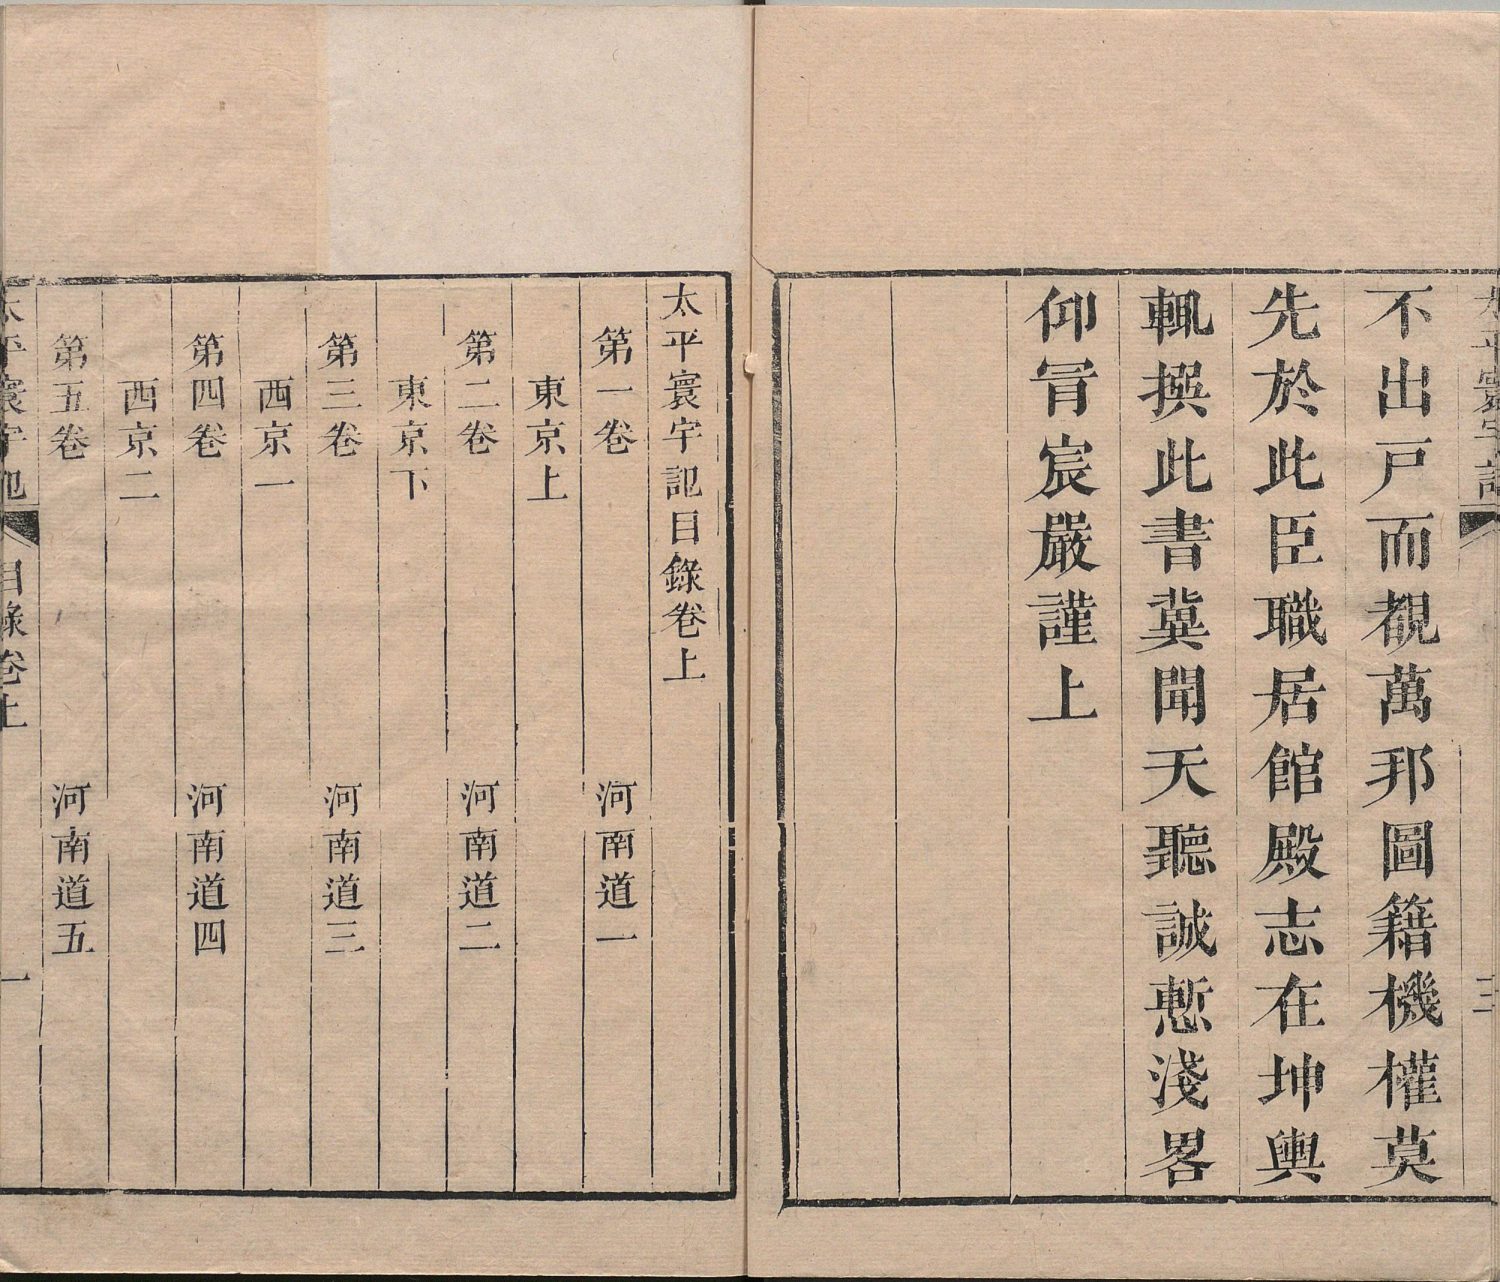 不出戸而覩萬邦圖籍機權莫
先於此臣職居館殿志在坤輿
輒撰此書冀聞天聽誠慙淺畧
仰冒宸嚴謹上
太平寰宇記目錄卷上
第一卷 河南道一
東京上
第二卷 河南道二
東京下
第三卷 河南道三
西京一
第四卷 河南道四
西京二
第五卷 河南道五
太平寰宇記 目錄卷上 一